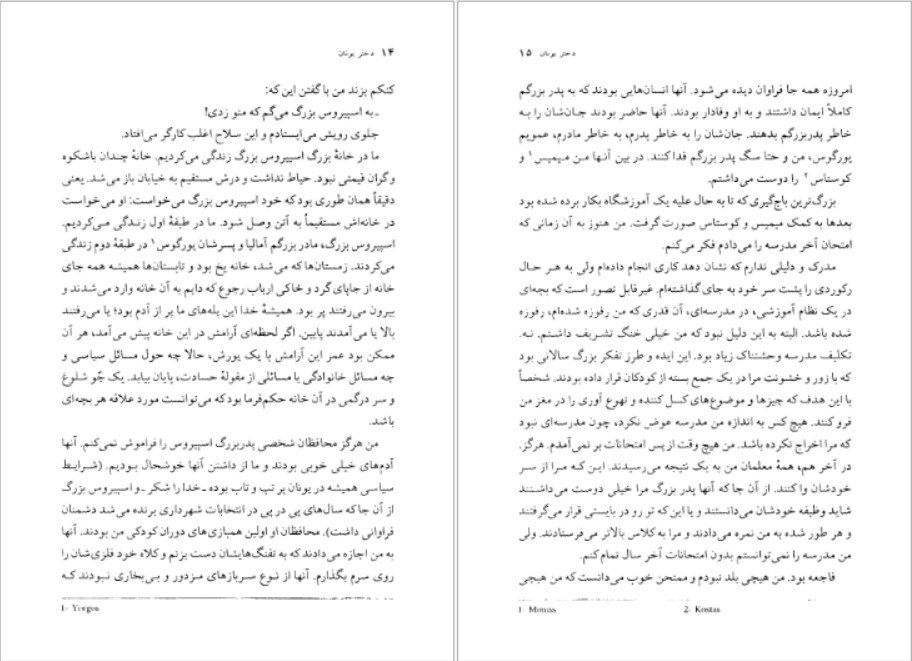 ۱۴ دختر یونان
کتکم بزند من با گفتن این که:
ـ به اسپیروس بزرگ می‌گم که منو زدی!
جلوی رویش می‌ایستادم و این سلاح اغلب کارگر می‌افتاد.
ما در خانهٔ بزرگ اسپیروس بزرگ زندگی می‌کردیم. خانهٔ چندان باشکوه
و گران قیمتی نبود. حیاط نداشت و درش مستقیم به خیابان باز می‌شد. یعنی
دقیقاً همان طوری بود که خود اسپیروس بزرگ می‌خواست: او می‌خواست
در خانه‌اش مستقیماً به آتن وصل شود. ما در طبقهٔ اول زندگی می‌کردیم.
اسپیروس بزرگ، مادر بزرگم آمالیا و پسرشان یورگوس۱ در طبقهٔ دوم زندگی
می‌کردند. زمستان‌ها که می‌شد، خانه یخ بود و تابستان‌ها همیشه همه جای
خانه از جاپای گرد و خاکی ارباب رجوع که دایم به آن خانه وارد می‌شدند و
بیرون می‌رفتند پر بود. همیشهٔ خدا این پله‌های ما پر از آدم بود؛ یا می‌رفتند
بالا یا می‌آمدند پایین. اگر لحظه‌ای آرامش در این خانه پیش می‌آمد، هر آن
ممکن بود عمر این آرامش با یک یورش، حالا چه حول مسائل سیاسی و
چه مسائل خانوادگی یا مسائلی از مقولهٔ حسادت، پایان بیابد. یک جوّ شلوغ
و سر درگمی در آن خانه حکم‌فرما بود که می‌توانست مورد علاقه هر بچه‌ای
باشد.
من هرگز محافظان شخصی پدربزرگ اسپیروس را فراموش نمی‌کنم. آنها
آدم‌های خیلی خوبی بودند و ما از داشتن آنها خوشحال بودیم. (شرایط
سیاسی همیشه در یونان پر تپ و تاب بوده ـ خدا را شکر ـ و اسپیروس بزرگ
از آن جا که سال‌های پی در پی در انتخابات شهرداری برنده می‌شد دشمنان
فراوانی داشت). محافظان او اولین همبازی‌های دوران کودکی من بودند. آنها
به من اجازه می‌دادند که به تفنگ‌هایشان دست بزنم و کلاه خود فلزی‌شان را
روی سرم بگذارم. آنها از نوع سربازهای مزدور و بی‌بخاری نبودند که
1- Yorgos
دختر یونان ۱۵
امروزه همه جا فراوان دیده می‌شود. آنها انسان‌هایی بودند که به پدر بزرگم
کاملاً ایمان داشتند و به او وفادار بودند. آنها حاضر بودند جان‌شان را به
خاطر پدربزرگم بدهند. جان‌شان را به خاطر پدرم، به خاطر مادرم، عمویم
یورگوس، من و حتا سگ پدر بزرگم فدا کنند. در بین آنها من میمیس۱ و
کوستاس۲ را دوست می‌داشتم.
بزرگ‌ترین باج‌گیری که تا به حال علیه یک آموزشگاه بکار برده شده بود
بعدها به کمک میمیس و کوستاس صورت گرفت. من هنوز به آن زمانی که
امتحان آخر مدرسه را می‌دادم فکر می‌کنم.
مدرک و دلیلی ندارم که نشان دهد کاری انجام داده‌ام ولی به هر حال
رکوردی را پشت سر خود به جای گذاشته‌ام. غیرقابل تصور است که بچه‌ای
در یک نظام آموزشی، در مدرسه‌ای، آن قدری که من رفوزه شده‌ام، رفوزه
شده باشد. البته به این دلیل نبود که من خیلی خنگ تشریف داشتم. نه.
تکلیف مدرسه وحشتناک زیاد بود. این ایده و طرز تفکر بزرگ سالانی بود
که با زور و خشونت مرا در یک جمع بسته از کودکان قرار داده بودند. شخصاً
با این هدف که چیزها و موضوع‌های کسل کننده و تهوع آوری را در مغز من
فرو کنند. هیچ کس به اندازه من مدرسه عوض نکرد، چون مدرسه‌ای نبود
که مرا اخراج نکرده باشد. من هیچ وقت از پس امتحانات بر نمی‌آمدم. هرگز.
در آخر هم، همهٔ معلمان من به یک نتیجه می‌رسیدند. این که مرا از سر
خودشان وا کنند. از آن جا که آنها پدر بزرگ مرا خیلی دوست می‌داشتند
شاید وظیفه خودشان می‌دانستند و یا این که تو رو در بایستی قرار می‌گرفتند
و هر طور شده به من نمره می‌دادند و مرا به کلاس بالاتر می‌فرستادند. ولی
من مدرسه را نمی‌توانستم بدون امتحانات آخر سال تمام کنم.
فاجعه بود. من هیچی بلد نبودم و ممتحن خوب می‌دانست که من هیچی
1- Mimias 2- Kostas